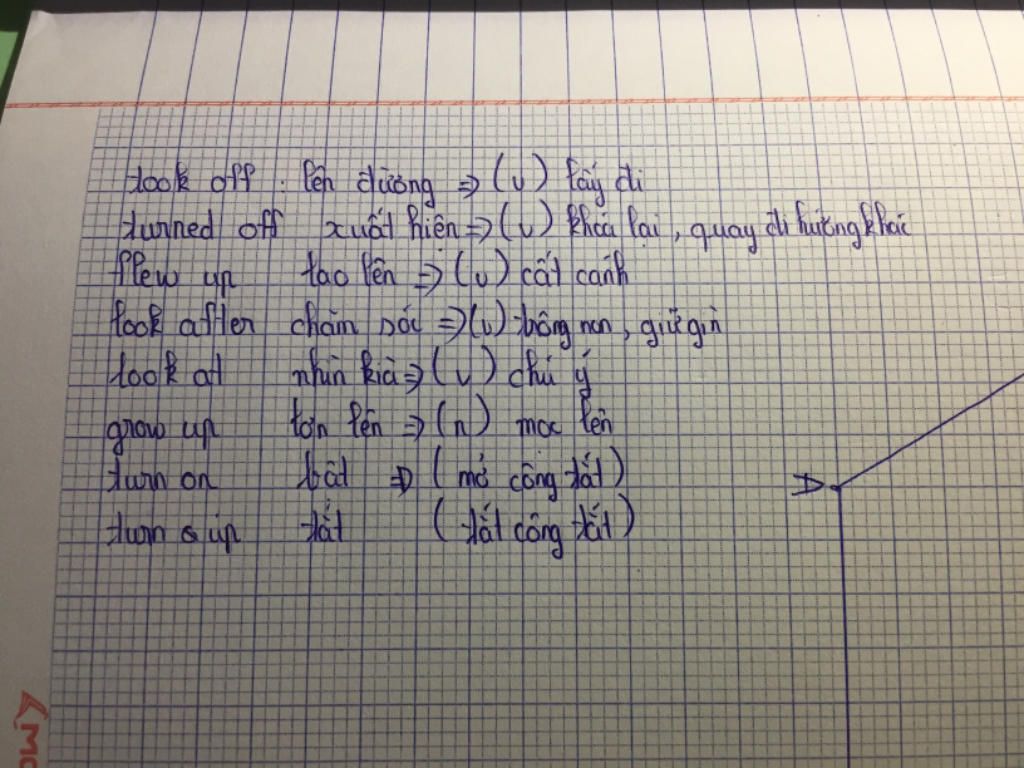 took off : lên đường => (v) lấy đi
turned off xuất hiện => (v) khóa lại, quay đi hướng khác
flew up tao lên => (v) cất cánh
look after chăm sóc => (v) trông non, giữ gìn
look at nhìn kià => (v) chú ý
grow up lơn lên => (n) moc lên
turn on bât => (mở công tắt)
turn up tắt (tắt công tắt)
D